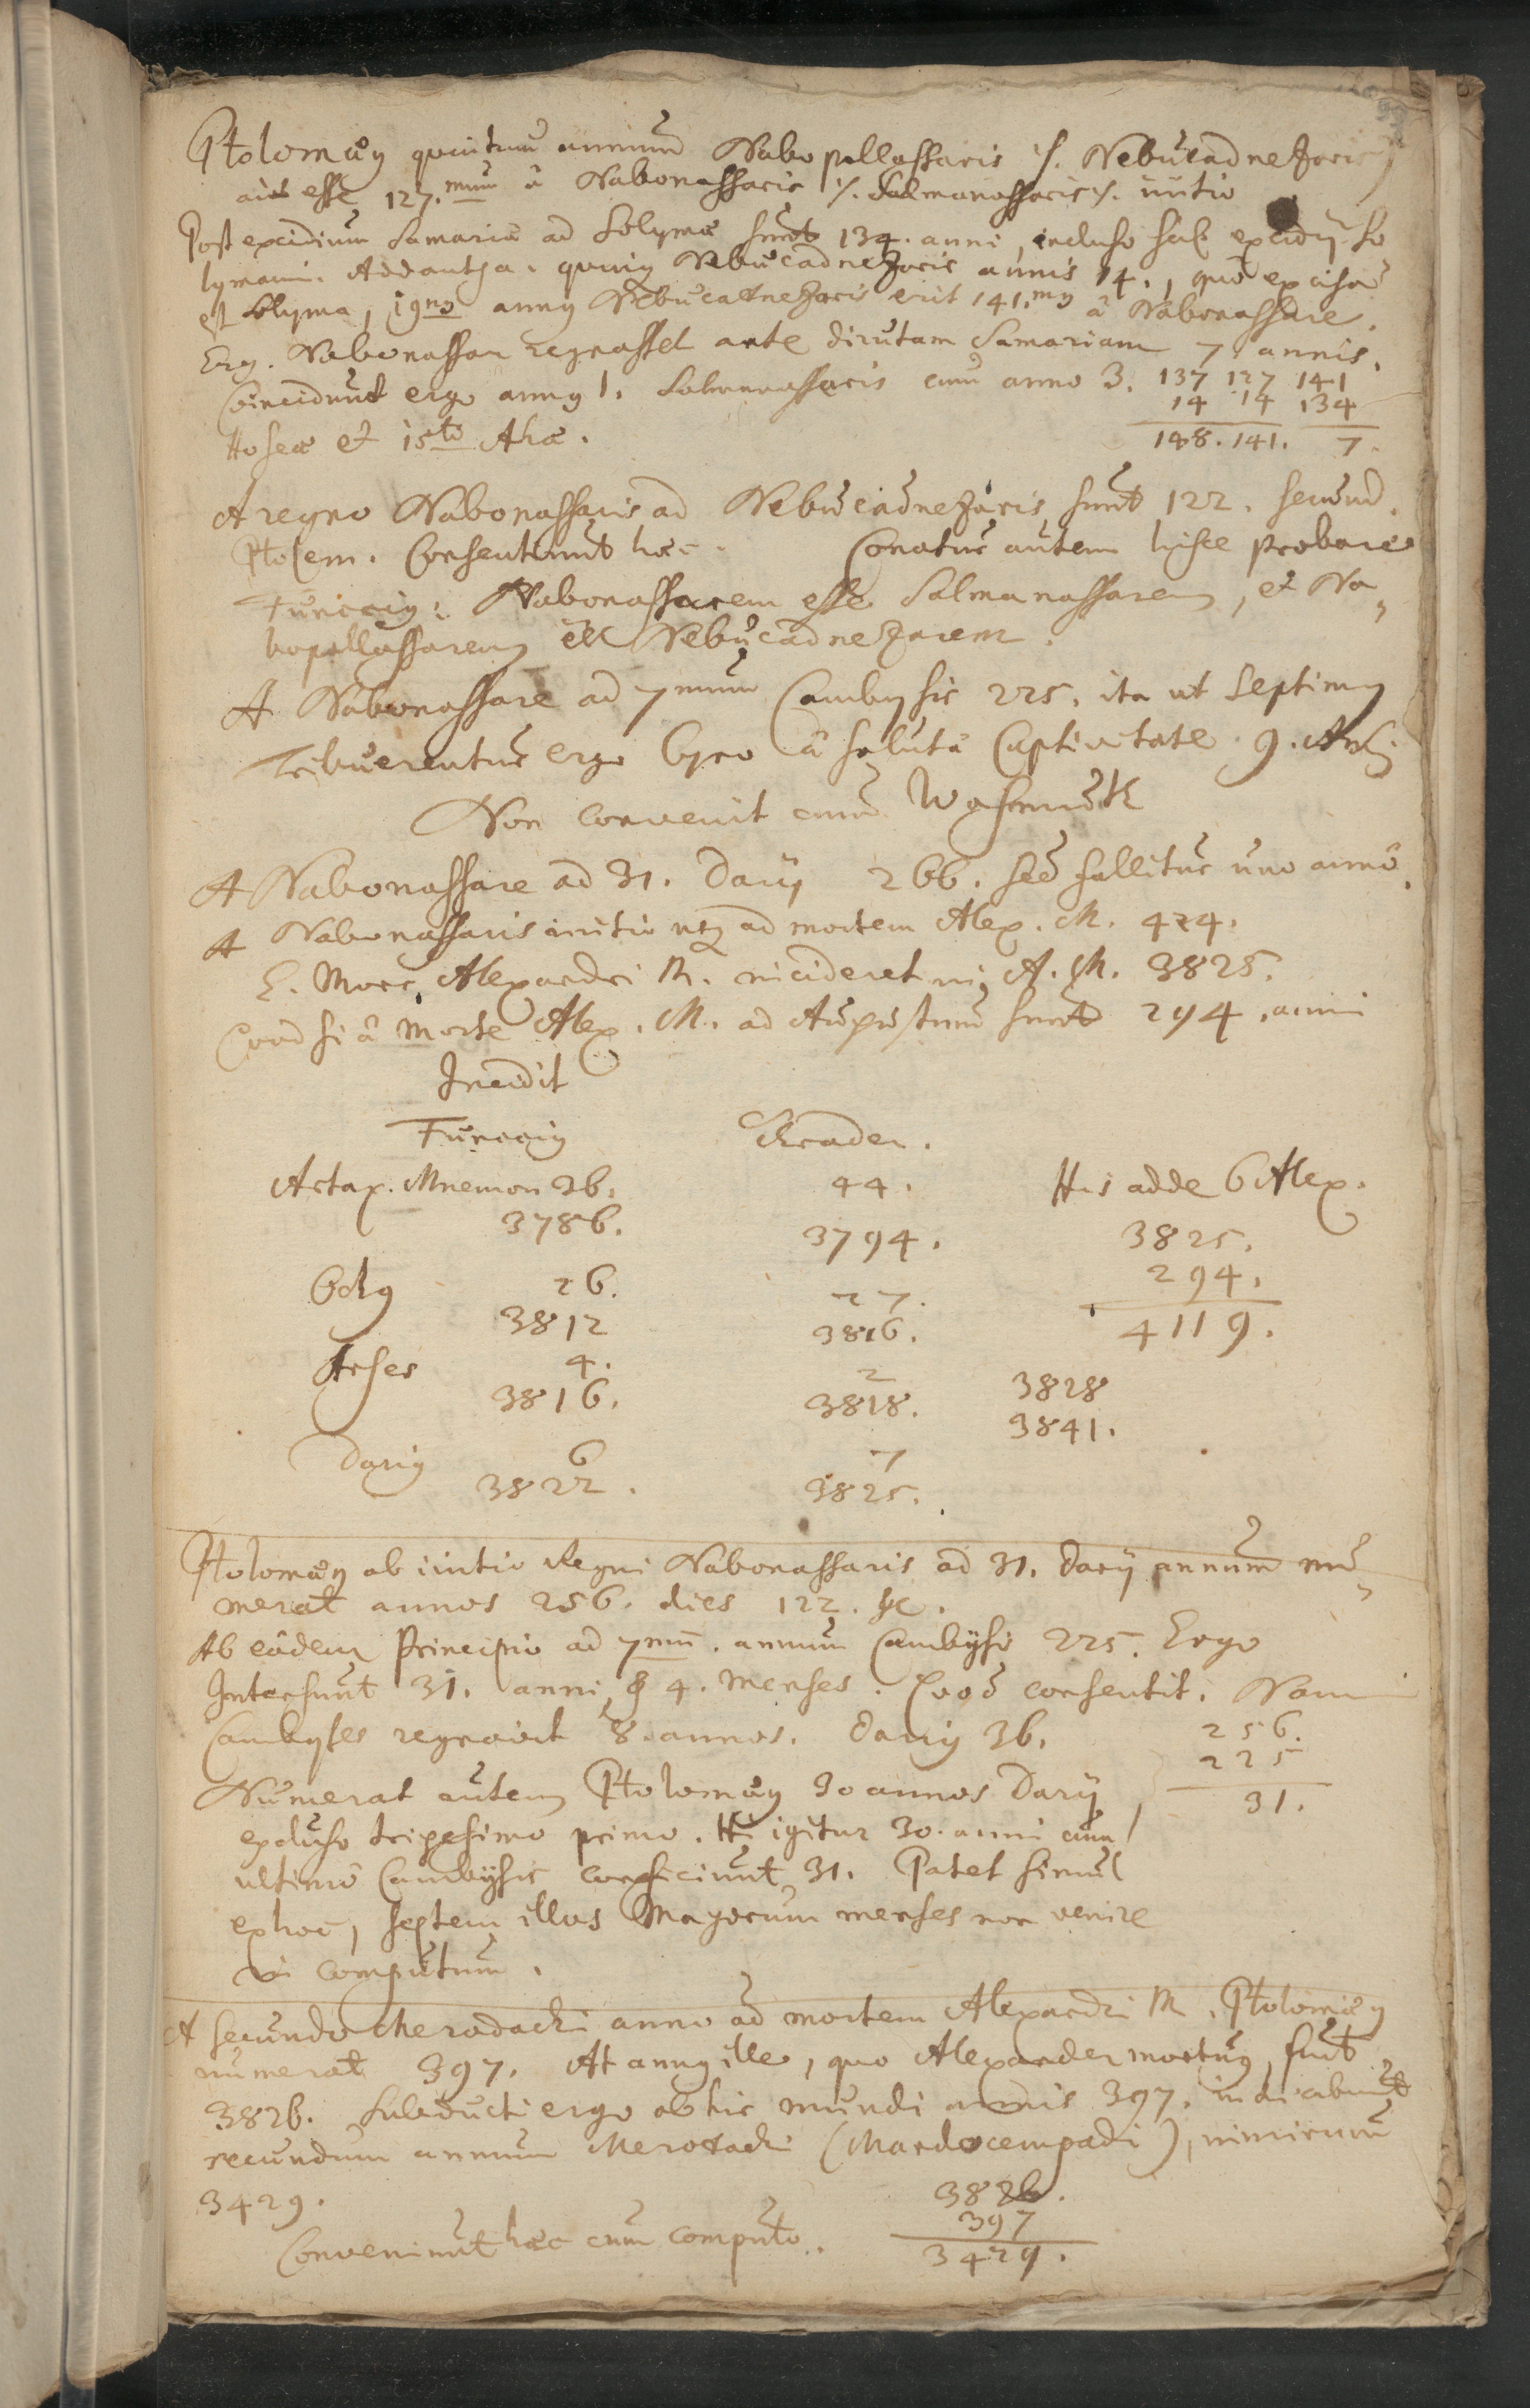 Ptolomæus quintum annum Nabopollassaris /. Nebucadnezaris /
ait esse 127.mum â Nabonassaris /. Salmanassaris /. initio
Post excidium Samariæ ad Solymæ sunt 134. anni, incluso scil. excidij So
lymani. Addantur quinque Nebucadnezaris annis 14., quo excisa
est Solyma, 19no annus Nebucadnezaris erit 141.mus â Nabonassare.
Erg. Nabonassar regnasset ante dirutam Samariam 7 annis.
Coincidunt ergo annus 1. Salmanassaris cum anno 3. 137 127 141
14 14 134
Hoseæ et 15to Ahæ. 148. 141. 7.
A regno Nabonassaris ad Nebucadnezaris sunt 122. secund.
Ptolem. Consentiunt hæc. Conatur autem hisce probare
Funccius: Nabonassarem esse Salmanassarem, et Na„
bopollassarem Nebucadnezarem.
A Nabonassare ad 7mum Cambysis 225. ita ut Septimus
Tribuerentur ergo Cyro â solutâ Captivitate 9.
Non convenit cum Wasmuth
A Nabonassare ad 31. Darij 266. sed fallitur uno anno.
A Nabonassaris initio usq ad mortem Alex. M. 424.
E. Mors Alexandri M. incideret in A. M. 3825.
Quod si â Morte Alex. M. ad Augustum sunt 294. anni
Incidit
Funccius
Artax. Mnemon 36. 44. His adde 6 Alex.
3786. 3794. 3825.
Ochus 26. 27. 294.
3812 3816. 4119.
Arses 4. 2 3828
3816. 3818. 3841.
Darius 6 7
3822. 3825.
Ptolomæus ab initio Regni Nabonassaris ad 31. Darij annum nu„
merat annos 256. dies 122. &c.
Ab eodem Principio ad 7mu. annum Cambysis 225. Ergo
Intersunt 31. anni & 4. Menses. Quod consentit. Nam
Cambyses regnavit 8. annos. Darius 36. 256.
225
Numerat autem Ptolomæus 30 annos Darij 31.
excluso trigesimo primo. Hi igitur 30. anni cum
ultimo Cambysis conficiunt 31. Patet simul
ex hoc, septem illos Magorum menses non venire
in computum.
A secundo Merodachi anno ad mortem Alexandri M. Ptolomæus
numerat 397. At annus ille, quo Alexander mortuus, fuit
3826. Subducti ergo ab his mundi annis 397. indicabunt
secundum annum Merodachi (Mardocempadi), nimirum
3429. 3826.
397
Conveniunt hæc cum computo. 3429.